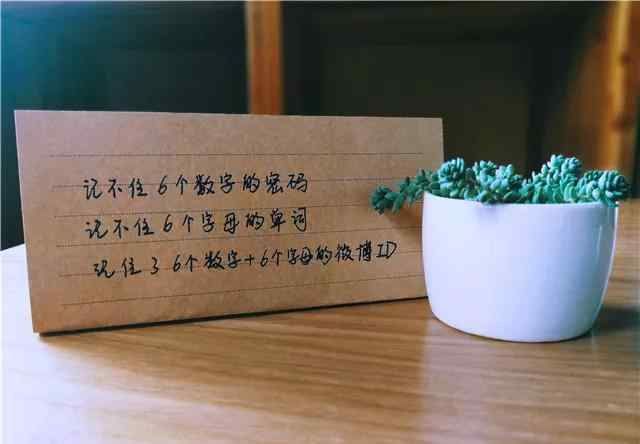 记不住6个数字的密码
记不住6个字母的单词
记住了6个数字+6个字母的微博ID